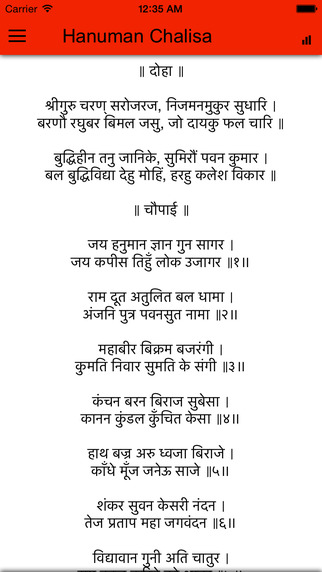 Carrier 12:35 AM
Hanuman Chalisa
॥ दोहा ॥
श्रीगुरु चरण् सरोजरज, निजमनमुकुर सुधारि ।
बरणौ रघुबर बिमल जसु, जो दायकु फल चारि ॥
बुद्धिहीन तनु जानिके, सुमिरौं पवन कुमार ।
बल बुद्धिविद्या देहु मोहिं, हरहु कलेश विकार ॥
॥ चौपाई ॥
जय हनुमान ज्ञान गुन सागर ।
जय कपीस तिहुँ लोक उजागर ॥१॥
राम दूत अतुलित बल धामा ।
अंजनि पुत्र पवनसुत नामा ॥२॥
महाबीर बिक्रम बजरंगी ।
कुमति निवार सुमति के संगी ॥३॥
कंचन बरन बिराज सुबेसा ।
कानन कुंडल कुँचित केसा ॥४॥
हाथ बज्र अरु ध्वजा बिराजे ।
काँधे मूँज जनेऊ साजे ॥५॥
शंकर सुवन केसरी नंदन ।
तेज प्रताप महा जगवंदन ॥६॥
विद्यावान गुनी अति चातुर ।